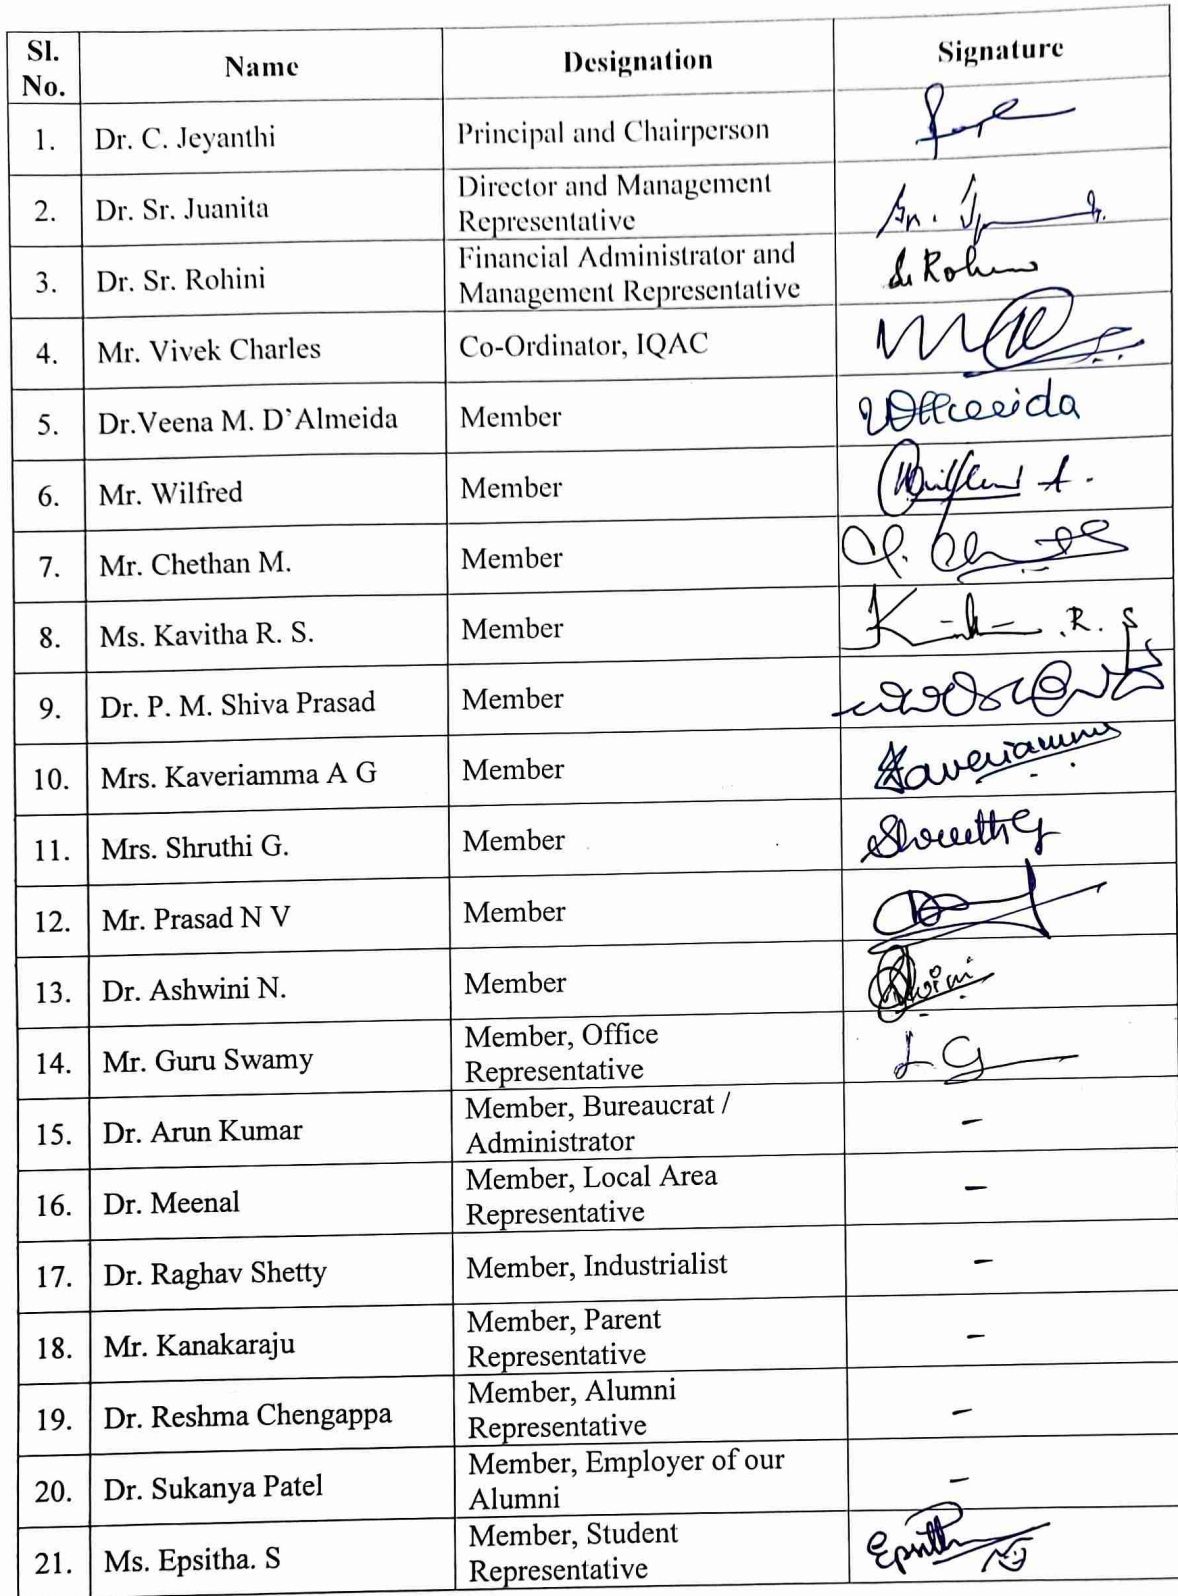 Sl. No. Name Designation Signature
1. Dr. C. Jeyanthi Principal and Chairperson
2. Dr. Sr. Juanita Director and Management Representative Sr.
3. Dr. Sr. Rohini Financial Administrator and Management Representative Sr Rohini
4. Mr. Vivek Charles Co-Ordinator, IQAC
5. Dr.Veena M. D'Almeida Member
6. Mr. Wilfred Member Wilfred A.
7. Mr. Chethan M. Member
8. Ms. Kavitha R. S. Member R. S
9. Dr. P. M. Shiva Prasad Member
10. Mrs. Kaveriamma A G Member Kaveriamma
11. Mrs. Shruthi G. Member Shruthi G
12. Mr. Prasad N V Member
13. Dr. Ashwini N. Member
14. Mr. Guru Swamy Member, Office Representative
15. Dr. Arun Kumar Member, Bureaucrat / Administrator -
16. Dr. Meenal Member, Local Area Representative -
17. Dr. Raghav Shetty Member, Industrialist -
18. Mr. Kanakaraju Member, Parent Representative -
19. Dr. Reshma Chengappa Member, Alumni Representative -
20. Dr. Sukanya Patel Member, Employer of our Alumni -
21. Ms. Epsitha. S Member, Student Representative